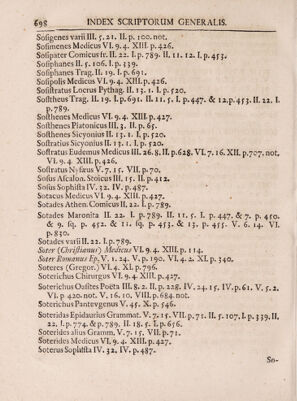 698 INDEX SCRIPTORUM GENERALIS.
Sosigenes varii III. 5. 21. II. p. 100. not.
Sosimenes Medicus VI. 9. 4. XIII. p. 426.
Sosipater Comicus fr. II. 22. I. p. 789. II. 11. 12. I. p. 453.
Sosiphanes II. 5. 106. I. p. 339.
Sosiphanes Trag. II. 19. I. p. 691.
Sosipolis Medicus VI. 9. 4. XIII. p. 426.
Sosistratus Locrus Pythag. II. 13. 1. I. p. 520.
Sositheus Trag. II. 19. I. p. 691. II. 11. 5. I. p. 447. & 12. p. 453. II. 22. I.
p. 789.
Sosthenes Medicus VI. 9. 4. XIII. p. 427.
Sosthenes Platonicus III. 3. II. p. 65.
Sosthenes Sicyonius II. 13. 1. I. p. 520.
Sostratius Sicyonius II. 13. 1. I. p. 520.
Sostratus Eudemus Medicus III. 26. 8. II. p. 628. VI. 7. 16. XII. p. 707. not.
VI. 9. 4. XIII. p. 426.
Sostratus Nysæus V. 7. 15. VII. p. 70.
Sosus Ascalon. Stoicus III. 15. II. p. 412.
Sosus Sophista IV. 32. IV. p. 487.
Sotacus Medicus VI. 9. 4. XIII. p. 427.
Sotades Athen. Comicus II. 22. I. p. 789.
Sotades Maronita II. 22. I. p. 789. II. 11. 5. I. p. 447. & 7. p. 450.
& 9. sq. p. 452. & 11. sq. p. 453. & 13. p. 455. V. 6. 14. VI.
p. 830.
Sotades varii II. 22. I. p. 789.
Soter (Christianus) Medicus VI. 9. 4. XIII. p. 114.
Soter Romanus Ep. V. 1. 24. V. p. 190. VI. 4. 2. XI. p. 340.
Soteres (Gregor.) VI. 4. XI. p. 796.
Soterichus Chirurgus VI. 9. 4. XIII. p. 427.
Soterichus Oasites Poëta III. 8. 2. II. p. 228. IV. 24. 15. IV. p. 61. V. 5. 2.
VI. p. 420. not. V. 16. 10. VIII. p. 684. not.
Soterichus Panteugenus V. 45. X. p. 546.
Soteridas Epidaurius Grammat. V. 7. 15. VII. p. 71. II. 5. 107. I. p. 339. II.
22. I. p. 774. & p. 789. II. 18. 5. I. p. 656.
Soterides alius Gramm. V. 7. 15. VII. p. 71.
Soterides Medicus VI. 9. 4. XIII. p. 427.
Soterus Sophista IV. 32. IV. p. 487.
So-